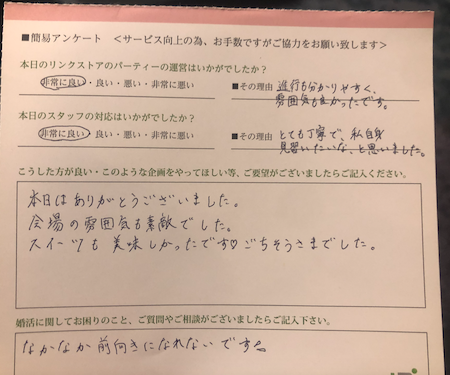 ■簡易アンケート ＜サービス向上の為、お手数ですがご協力をお願い致します＞
本日のリンクストアのパーティーの運営はいかがでしたか？
非常に良い・良い・悪い・非常に悪い
■その理由 進行も分かりやすく、
雰囲気も良かったです。
本日のスタッフの対応はいかがでしたか？
非常に良い・良い・悪い・非常に悪い
■その理由 とても丁寧で、私自身
見習いたいな、と思いました。
こうした方が良い・このような企画をやってほしい等、ご要望がございましたらご記入ください。
本日はありがとうございました。
会場の雰囲気も素敵でした。
スイーツも美味しかったです♡ごちそうさまでした。
婚活に関してお困りのこと、ご質問やご相談がございましたらご記入下さい。
なかなか前向きになれないです。